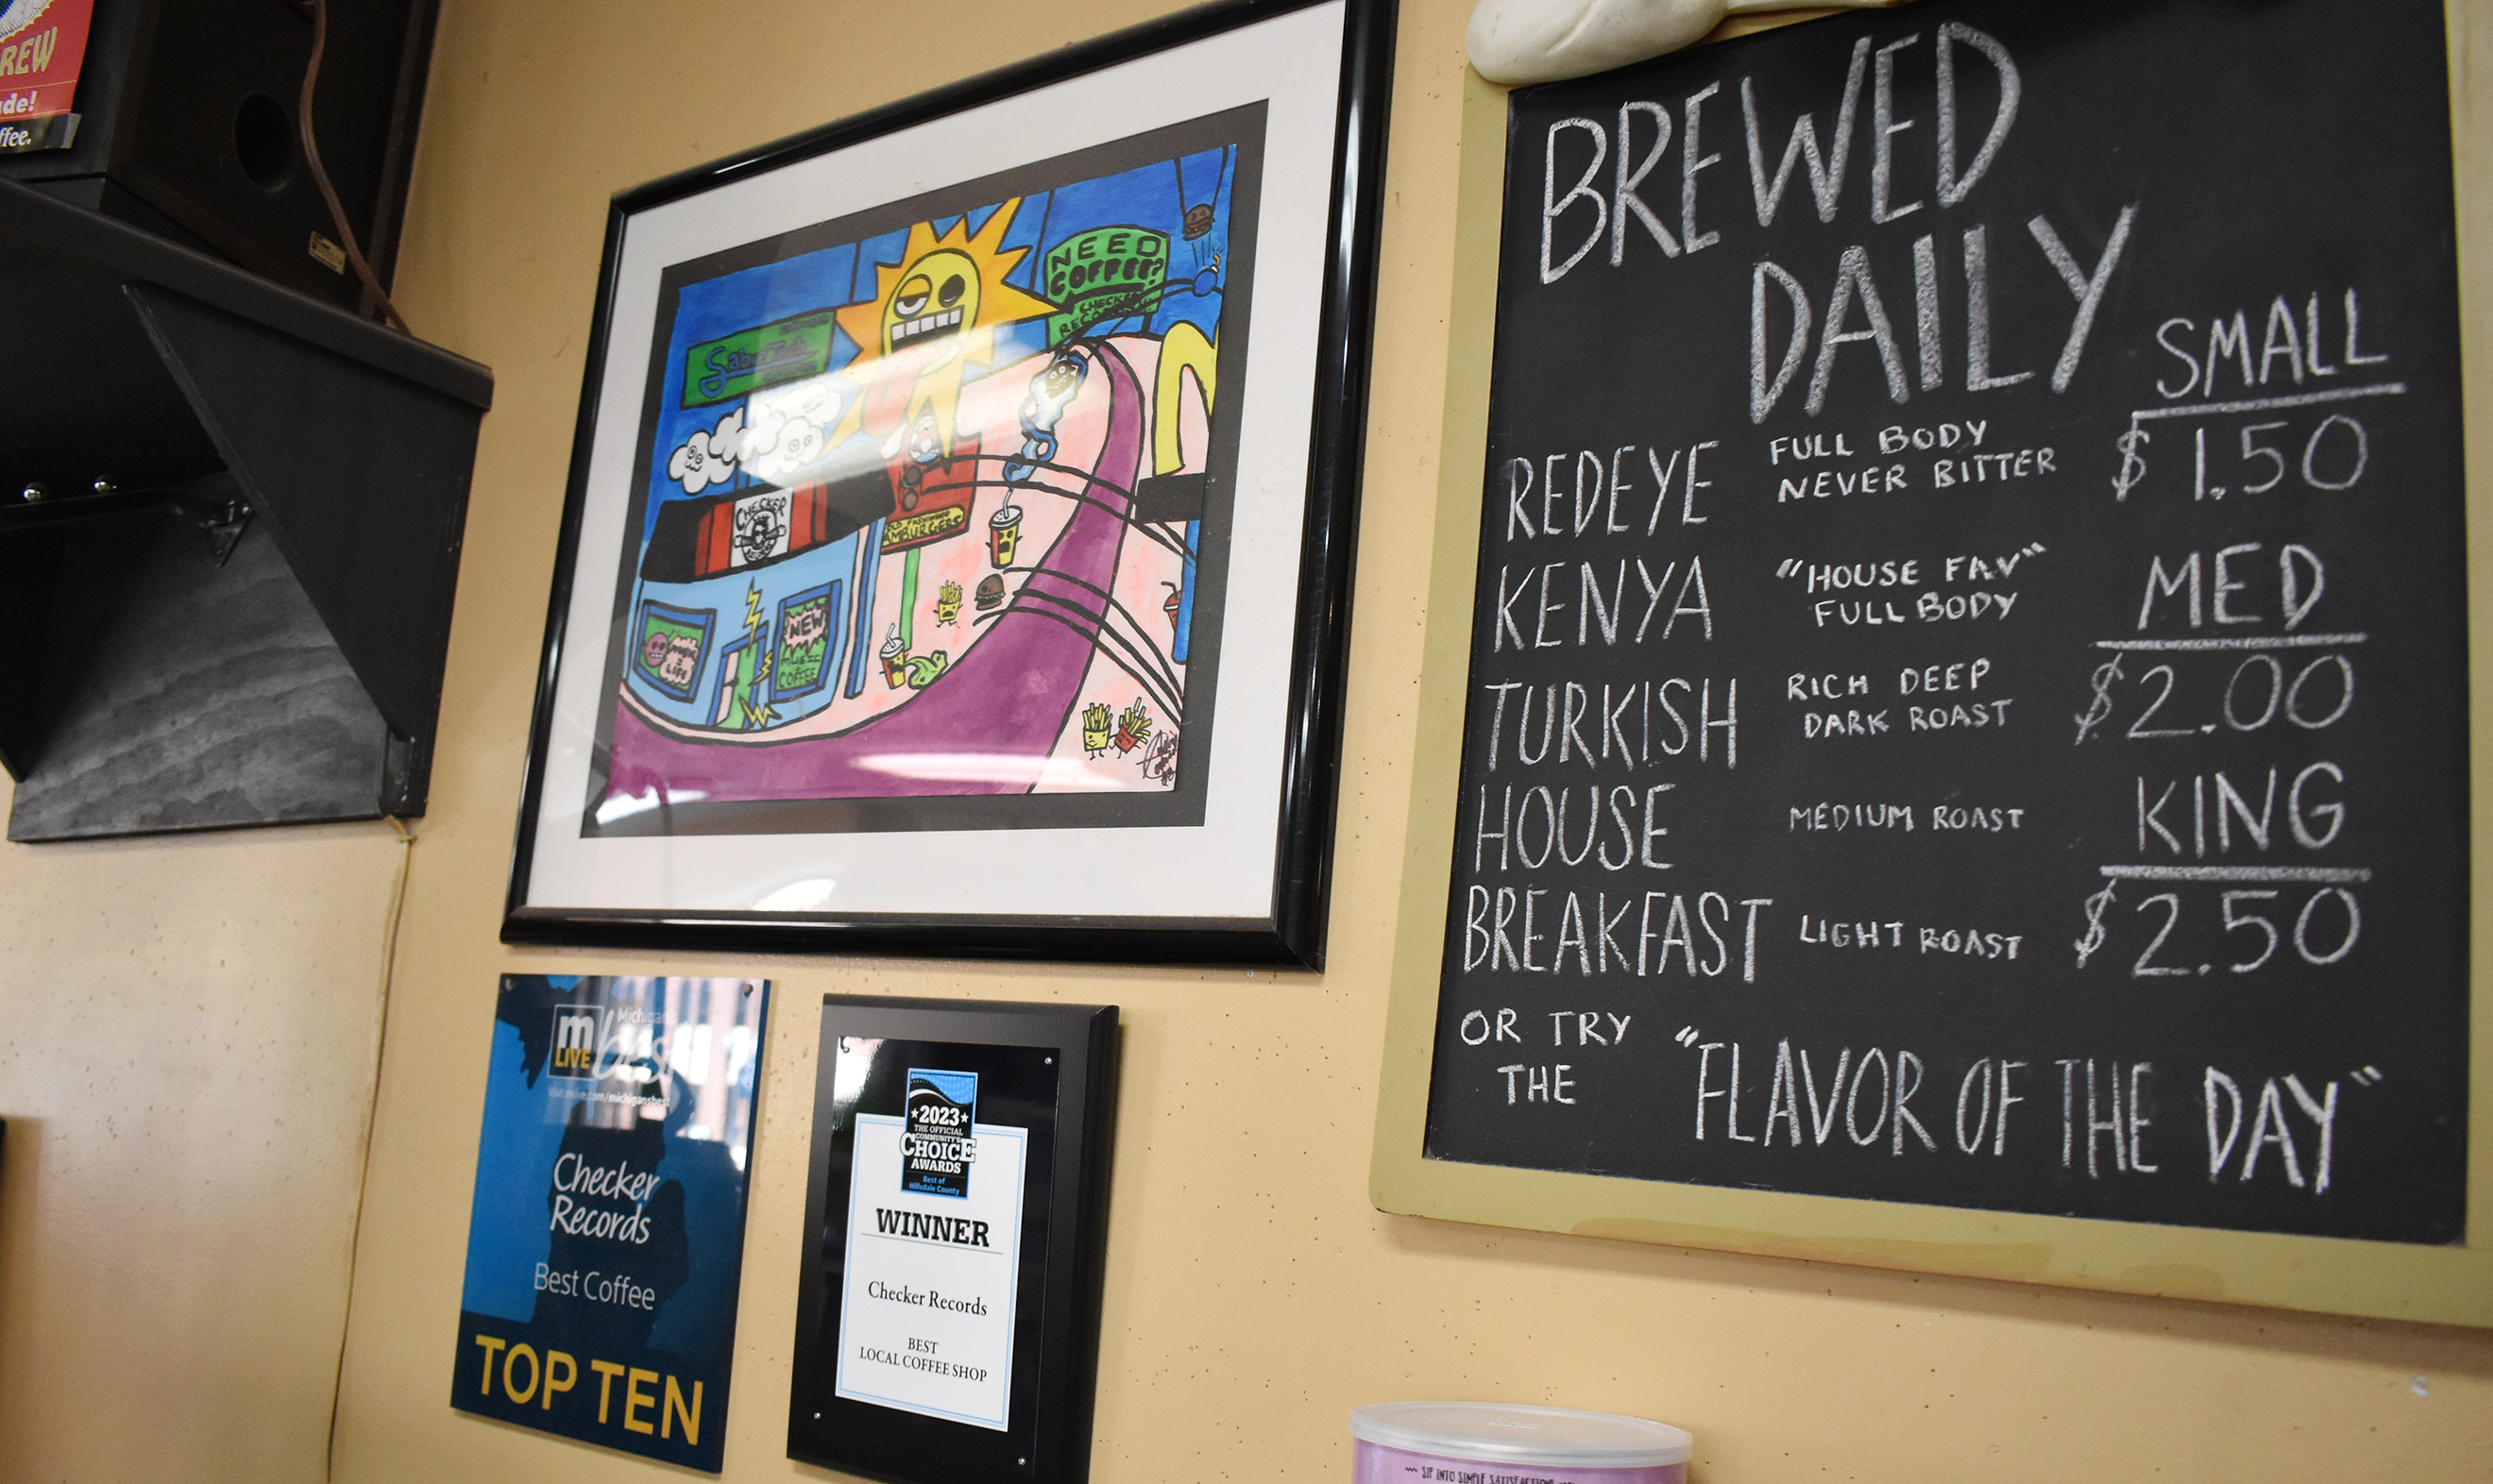 REW
de!
ffee.
NEED
COFFEE?
CHECKER
RECORDS
CHECKER
OLD FASHIONED
HAMBURGERS
= LIFE
NEW
MUSIC
COFFEE
m
LIVE
Michigan's
best
Visit mlive.com/michigansbest
Checker
Records
Best Coffee
TOP TEN
2023
THE OFFICIAL
COMMUNITY'S
CHOICE
AWARDS
Best of
Hillsdale County
WINNER
Checker Records
BEST
LOCAL COFFEE SHOP
BREWED
DAILY
SMALL
$1.50
REDEYE FULL BODY
NEVER BITTER
KENYA "HOUSE FAV"
FULL BODY
MED
$2.00
TURKISH RICH DEEP
DARK ROAST
HOUSE MEDIUM ROAST
KING
$2.50
BREAKFAST LIGHT ROAST
OR TRY
THE "FLAVOR OF THE DAY"
SIP INTO SIMPLE SATISFACTION!